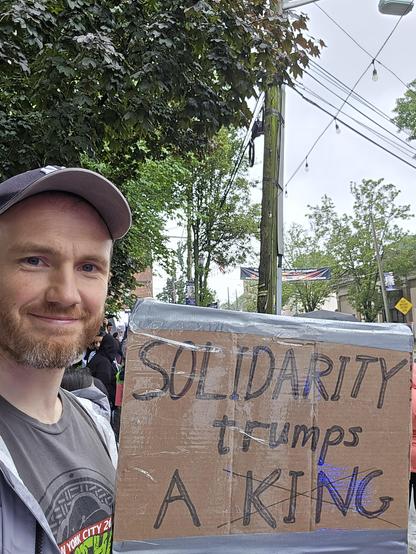 SOLIDARITY
trumps
A KING
YORK CITY